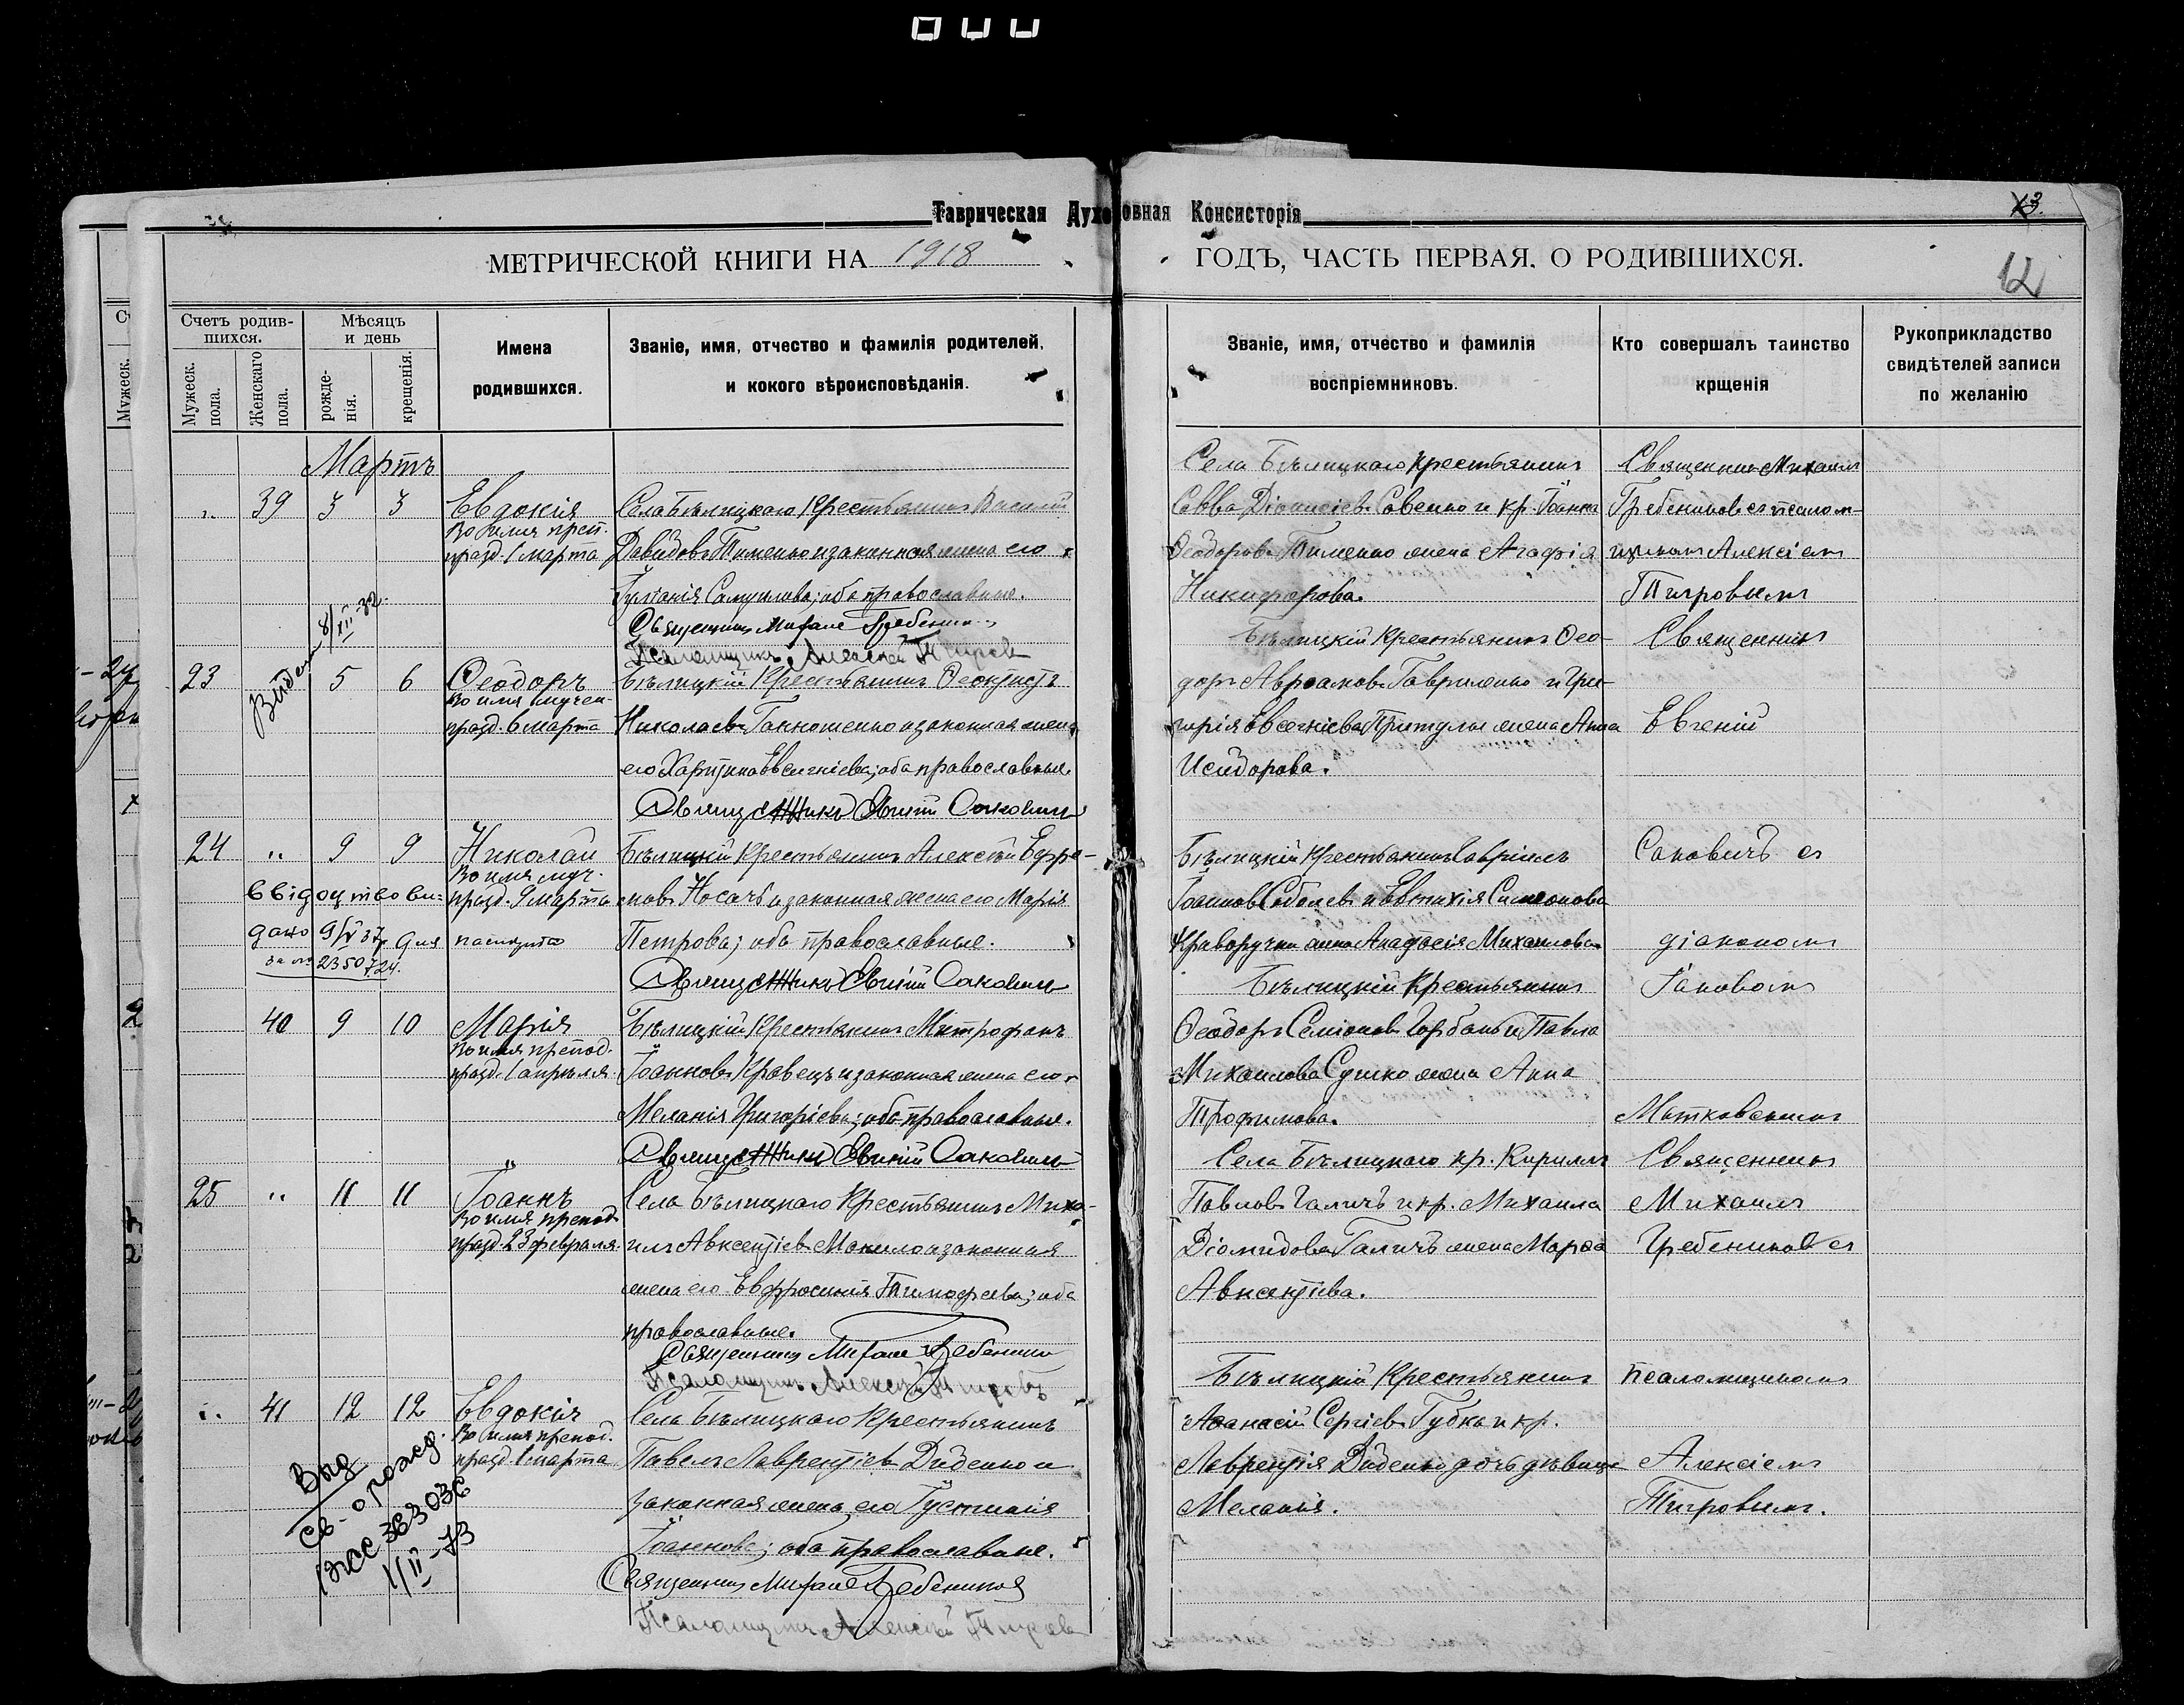 Таврическая Духовная Консисторія
13.
МЕТРИЧЕСКОЙ КНИГИ НА 1918 ГОДЪ, ЧАСТЬ ПЕРВАЯ, О РОДИВШИХСЯ.
12
Счетъ родив-
шихся.
Мужеск. пола.
Женскаго пола.
Мѣсяцъ
и день
рожде-
нія.
крещенія.
Имена
родившихся.
Званіе, имя, отчество и фамилія родителей,
и кокого вѣроисповѣданія.
Званіе, имя, отчество и фамилія
воспріемниковъ.
Кто совершалъ таинство
крщенія
Рукоприкладство
свидѣтелей записи
по желанію
Мужеск.
Мартъ
39 3 3 Евдокія
Во имя преп.
празд. 1 марта
Села Бѣлицкаго Крестьянинъ Василій
Давидовъ Тименко и законная жена его
Іуліанія Самуилова; оба православные.
Священникъ Михаилъ Гребенник
Псаломщикъ Алексѣй Тигровъ
Села Бѣлицкаго Крестьянинъ
Савва Діонисіевъ Совенко и кр. Іоанна
Ѳеодорова Тименко жена Агафія
Никифорова.
Священник Михаилъ
Гребениковъ съ псалом-
щикомъ Алексіемъ
Тигровымъ
Видан 8/XII-32
23 5 6 Ѳеодоръ
Во имя мучен.
празд. 6 марта
Бѣлицкій Крестьянинъ Ѳеоктистъ
Николаевъ и законная жена
его Харитина Евсигніева; оба православные.
Священникъ Евгеній Саковичъ
Бѣлицкій Крестьянинъ Ѳео-
доръ Авраамовъ Гавриленко и Гри-
горія Евсегніева Притулы жена Анна
Исидорова.
Священникъ
Евгеній
24 " 9 9 Николай
Во имя муч.
празд. 9 марта
Бѣлицкій Крестьянинъ Алексѣй Ефре-
мовъ Носачъ и законная жена его Марія
Петрова; оба православные.
Священникъ Евгеній Саковичъ
Свідоцтво ви-
дано 9/V 37 для паспорта
за № 2350724.
Бѣлицкій Крестьянинъ Гавріилъ
Іоанновъ Соболевъ и Евтихія Симеонова
Криворучки жена Анастасія Михаилова
Саковичъ съ
діакономъ
Іаковомъ
Матковскимъ
40 9 10 Марія
Во имя препод.
празд. 1 апрѣля
Бѣлицкій Крестьянинъ Митрофанъ
Іоанновъ Кравецъ и законная жена его
Меланія Григоріева; оба православные.
Священникъ Евгеній Саковичъ
Бѣлицкій Крестьянинъ
Ѳеодоръ Семіоновъ Горбань и Павла
Михаилова Сушко жена Анна
Трофимова.
25 " 11 11 Іоаннъ
Во имя препод
празд. 23 февраля.
Села Бѣлицкаго Крестьянинъ Миха-
илъ Авксентіевъ и законная
жена его Евфросинія Тимофеева; оба
православные.
Священникъ Михаилъ Гребенник
Псаломщикъ Алексѣй Тигровъ
Села Бѣлицкаго кр. Кириллъ
Павловъ Галичъ и кр. Михаила
Діомидова Галичъ жена Марѳа
Авксентіева.
Священникъ
Михаилъ
Гребениковъ съ
псаломщикомъ
Алексіемъ
Тигровымъ.
41 12 12 Евдокія
Во имя препод.
празд. 1 марта
Села Бѣлицкаго Крестьянинъ
Павелъ Лаврентіевъ Диденко и
законная жена его Іустинія
Іоаннова; оба православные.
Священникъ Михаилъ Гребениковъ
Псаломщикъ Алексѣй Тигровъ
Выд
Св-о рожд.
363036
1/II-73
Бѣлицкій Крестьянинъ
Аѳанасій Сергіевъ Губка и кр.
Лаврентія Диденко дочь дѣвица
Меланія.